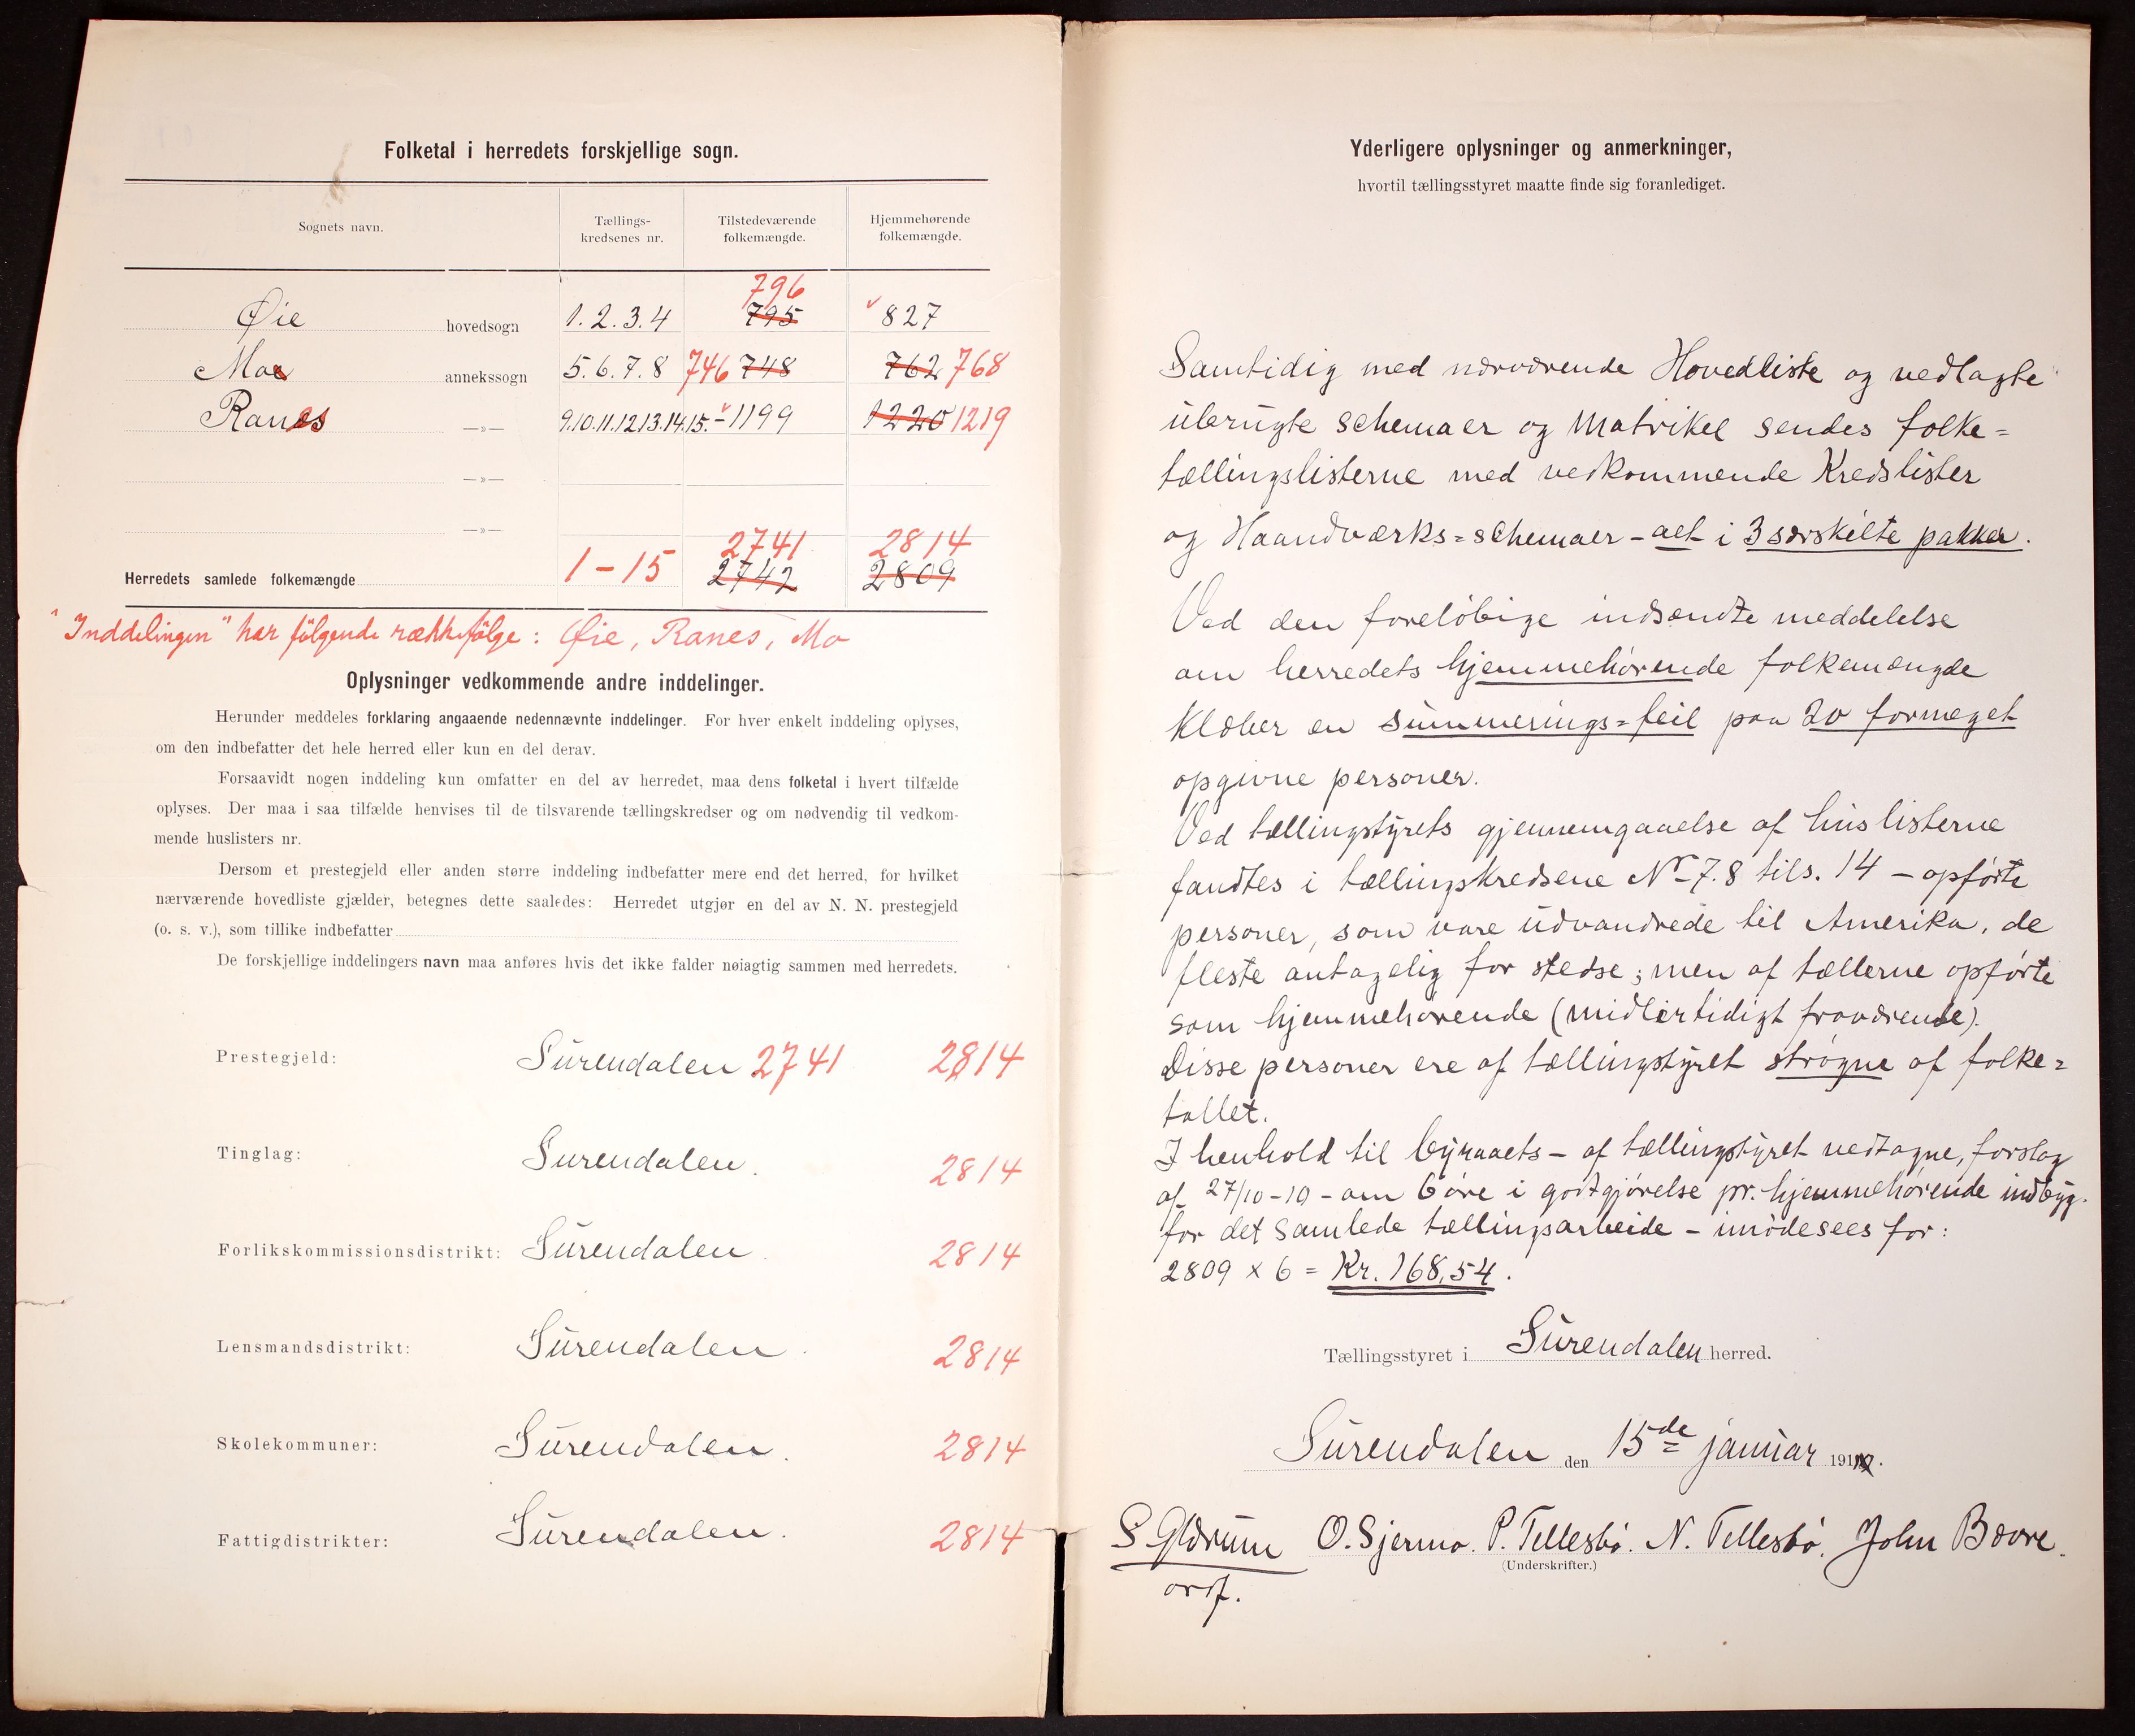 Folketal i herredets forskjellige sogn.
Sognets navn.
Tællings-
kredsenes nr.
Tilstedeværende
folkemængde.
Hjemmehørende
folkemængde.
796
Øie hovedsogn 1.2.3.4 795 827
Moe annekssogn 5.6.7.8 746 748 762 768
Ranes —»— 9.10.11.12.13.14.15. – 1199 1220 1219
—»—
—»—
2741 2814
Herredets samlede folkemængde 1 – 15 2742 2809
"Inddelingen" har følgende rækkefølge: Øie, Ranes, Mo
Oplysninger vedkommende andre inddelinger.
Herunder meddeles forklaring angaaende nedennævnte inddelinger. For hver enkelt inddeling oplyses,
om den indbefatter det hele herred eller kun en del derav.
Forsaavidt nogen inddeling kun omfatter en del av herredet, maa dens folketal i hvert tilfælde
oplyses. Der maa i saa tilfælde henvises til de tilsvarende tællingskredser og om nødvendig til vedkom-
mende huslisters nr.
Dersom et prestegjeld eller anden større inddeling indbefatter mere end det herred, for hvilket
nærværende hovedliste gjælder, betegnes dette saaledes: Herredet utgjør en del av N. N. prestegjeld
(o. s. v.), som tillike indbefatter
De forskjellige inddelingers navn maa anføres hvis det ikke falder nøiagtig sammen med herredets.
Prestegjeld: Surendalen 2741 2814
Tinglag: Surendalen. 2814
Forlikskommissionsdistrikt: Surendalen. 2814
Lensmandsdistrikt: Surendalen. 2814
Skolekommuner: Surendalen. 2814
Fattigdistrikter: Surendalen. 2814
Yderligere oplysninger og anmerkninger,
hvortil tællingsstyret maatte finde sig foranlediget.
Samtidig med nærværende Hovedliste og vedlagte
ubrugte schemaer og Matrikel sendes folke=
tællingslisterne med vedkommende Kredslister
og Haandværks=schemaer – alt i 3 særskilte pakker.
Ved den foreløbige indsendte meddelelse
om herredets hjemmehørende folkemængde
klæber en summerings=feil paa 20 formeget
opgivne personer.
Ved tællingstyrets gjennemgaaelse af huslisterne
fandtes i tællingskredsene No 7.8 tils. 14 – opførte
personer, som vare udvandrede til Amerika, de
fleste antagelig for stedse; men af tællerne opførte
som hjemmehørende (midlertidigt fraværende).
Disse personer ere af tællingstyret strøgne af folke=
tallet.
I henhold til byraaets – af tællingstyret vedtagne, forslag
af 27/10–10 – om 6 øre i godtgjørelse pr. hjemmehørende indbyg.
for det samlede tællingsarbeide – imødesees for:
2809 x 6 = Kr. 168,54.
Tællingsstyret i Surendalen herred.
Surendalen den 15de januar 1911.
S Glærum O. Sjermo. P. Tellesbø. N. Tellesbø. John Bævre.
(Underskrifter.)
ordf.